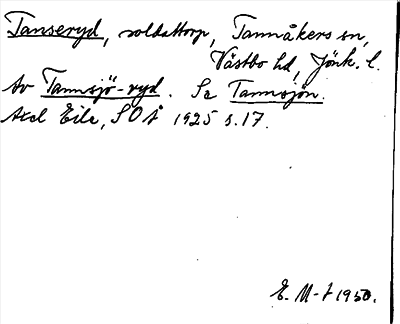 Tanseryd, soldattorp, Tannåkers sn,
Västbo hd, Jönk. l.
Av Tannsjö-ryd. Se Tannsjön.
Axel Eile, SOÅ 1925 s. 17.
E. M-t 1950.